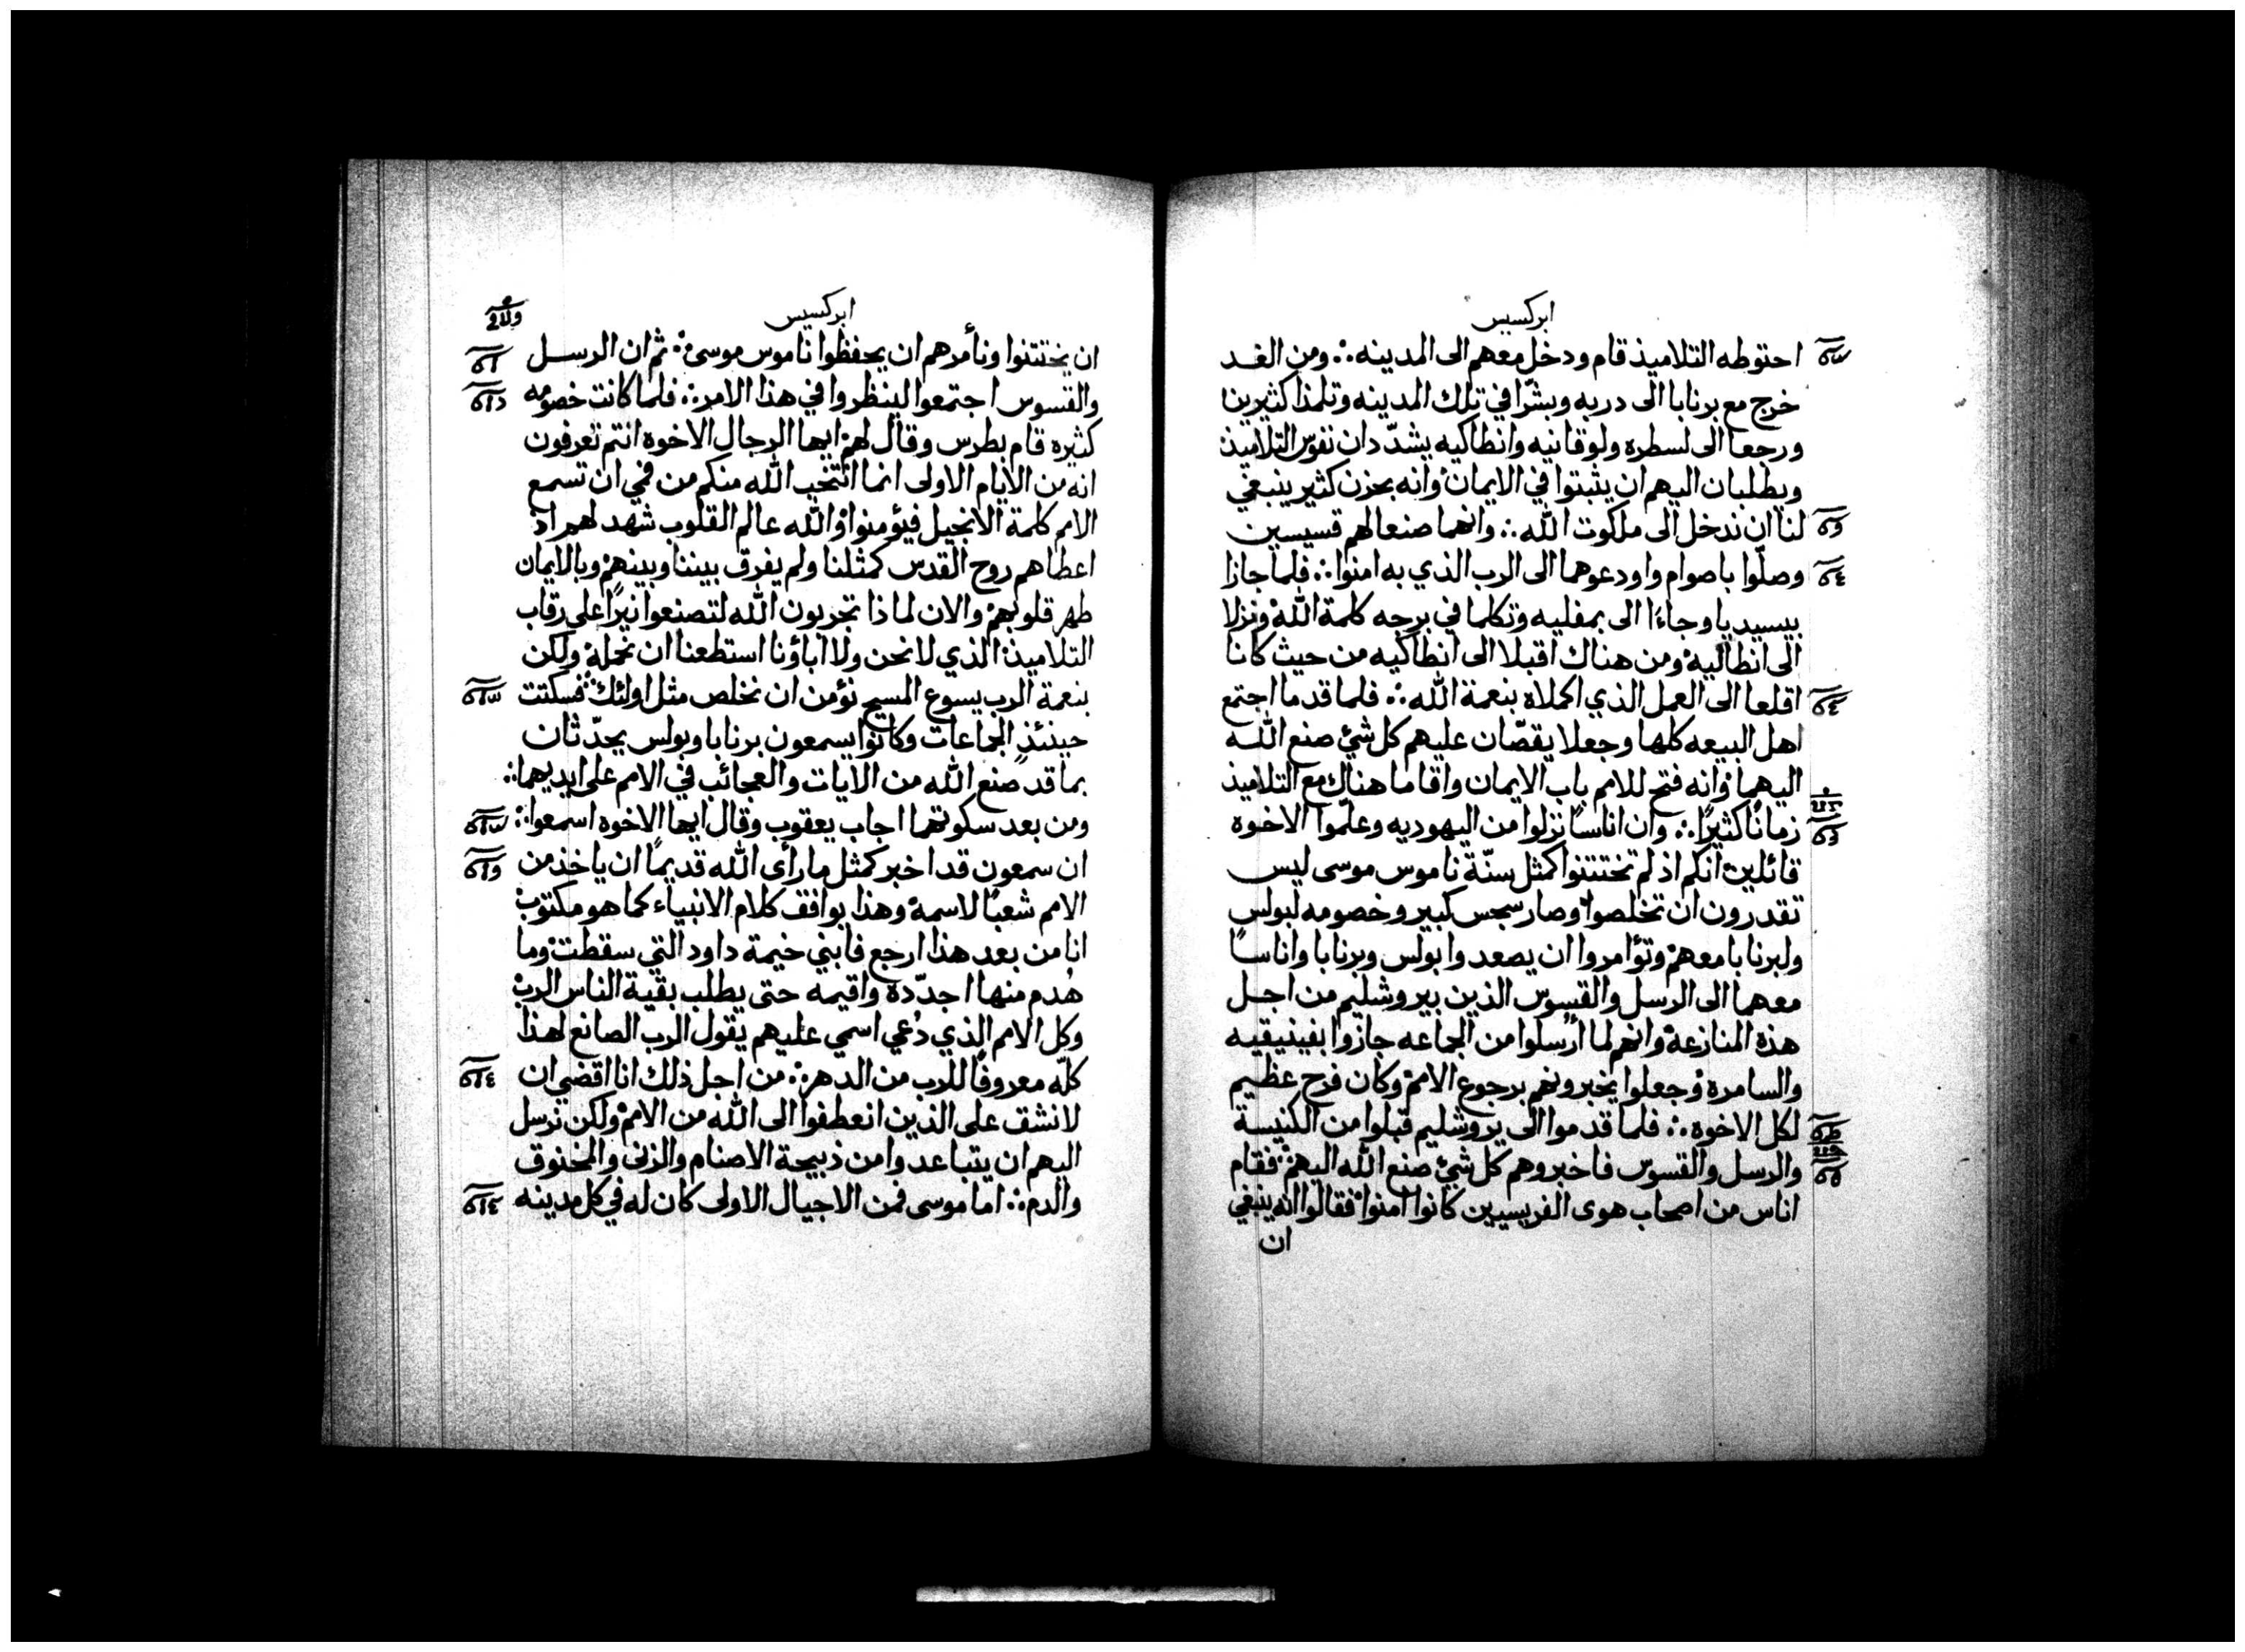 ابركسيس
احتوطه التلاميذ قام ودخل معهم الى المدينه ∴ ومن الغد
خرج مع برنابا الى دربه وبشّرا في تلك المدينه وتلمذا كثيرين
ورجعا الى لسطره ولوقانيه وانطاكيه يشدّدان نفوس التلاميذ
ويطلبان اليهم ان يثبتوا في الايمان وانه بحزن كثير ينبغي
لنا ان ندخل الى ملكوت الله ∴ وانهما صنعا لهم قسيسين
وصلّوا باصوام واودعوهما الى الرب الذي به امنوا ∴ فلما جازا
بيسيديا وجاءا الى بمفليه وتكلما في برجه كلمة الله ونزلا
الى انطاليه ومن هناك اقبلا الى انطاكيه من حيث كانا
اقلعا الى العمل الذي اكملاه بنعمة الله ∴ فلما قدما اجتمع
اهل البيعه كلها وجعلا يقصّان عليهم كل شئ صنع الله
اليهما وانه فتح للامم باب الايمان واقاما هناك مع التلاميذ
زمانًا كثيرًا ∴ وان اناسًا نزلوا من اليهوديه وعلّموا الاخوة
قائلين انكم اذ لم تختتنوا كمثل سنّة ناموس موسى ليس
تقدرون ان تخلصوا وصار سجس كبير وخصومه لبولس
ولبرنابا معهم وتؤامروا ان يصعدوا بولس وبرنابا واناسًا
معهما الى الرسل والقسوس الذين بيروشليم من اجل
هذه المنازعة وانهم لما أرسلوا من الجماعه جازوا بفينيقيه
والسامره وجعلوا يخبرونهم برجوع الامم وكان فرح عظيم
لكل الاخوه ∴ فلما قدموا الى يروشليم قبلوا من الكنيسة
والرسل والقسوس فاخبروهم كل شئ صنع الله اليهم فقام
اناس من اصحاب هوى الفريسيين كانوا امنوا فقالوا انه ينبغي
ان
ابركسيس
ان يختتنوا ونأمرهم ان يحفظوا ناموس موسى ∴ ثم ان الرسل
والقسوس اجتمعوا لينظروا في هذا الامر ∴ فلما كانت خصومه
كثيره قام بطرس وقال لهم ايها الرجال الاخوه انتم تعرفون
انه من الايام الاولى انما انتخب الله منكم من فمي ان تسمع
الامم كلمة الانجيل فيؤمنوا والله عالم القلوب شهد لهم اذ
اعطاهم روح القدس كمثلنا ولم يفرق بيننا وبينهم وبالايمان
طهر قلوبهم والان لماذا تجربون الله لتصنعوا نيرًا على رقاب
التلاميذ الذي لا نحن ولا اباؤنا استطعنا ان نحمله ولكن
بنعمة الرب يسوع المسيح نؤمن ان نخلص مثل اولئك ∴ فسكتت
حينئذٍ الجماعات وكانوا يسمعون برنابا وبولس يحدّثان
بما قد صنع الله من الايات والعجائب في الامم على ايديهما ∴
ومن بعد سكوتهما اجاب يعقوب وقال ايها الاخوه اسمعوا ∴
ان سمعون قد اخبر كمثل ما رأى الله قديمًا ان ياخذ من
الامم شعبًا لاسمه وهذا يوافق كلام الانبياء كما هو مكتوب
انا من بعد هذا ارجع فابني خيمة داود التي سقطت وما
هُدم منها اجدّده واقيمه حتى يطلب بقية الناس الرب
وكل الامم الذي دُعي اسمي عليهم يقول الرب الصانع لهذا
كلّه معروفًا للرب من الدهر ∴ من اجل ذلك انا اقضي ان
لا نشق على الذين انعطفوا الى الله من الامم ولكن نرسل
اليهم ان يتباعدوا من ذبيحة الاصنام والزنى والمخنوق
والدم ∴ اما موسى فمن الاجيال الاولى كان له في كل مدينه